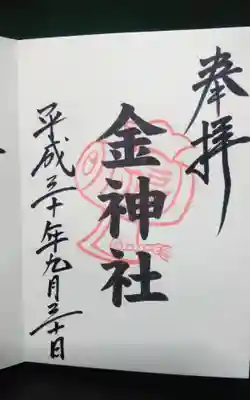 奉拝
金神社
平成三十年九月三十日